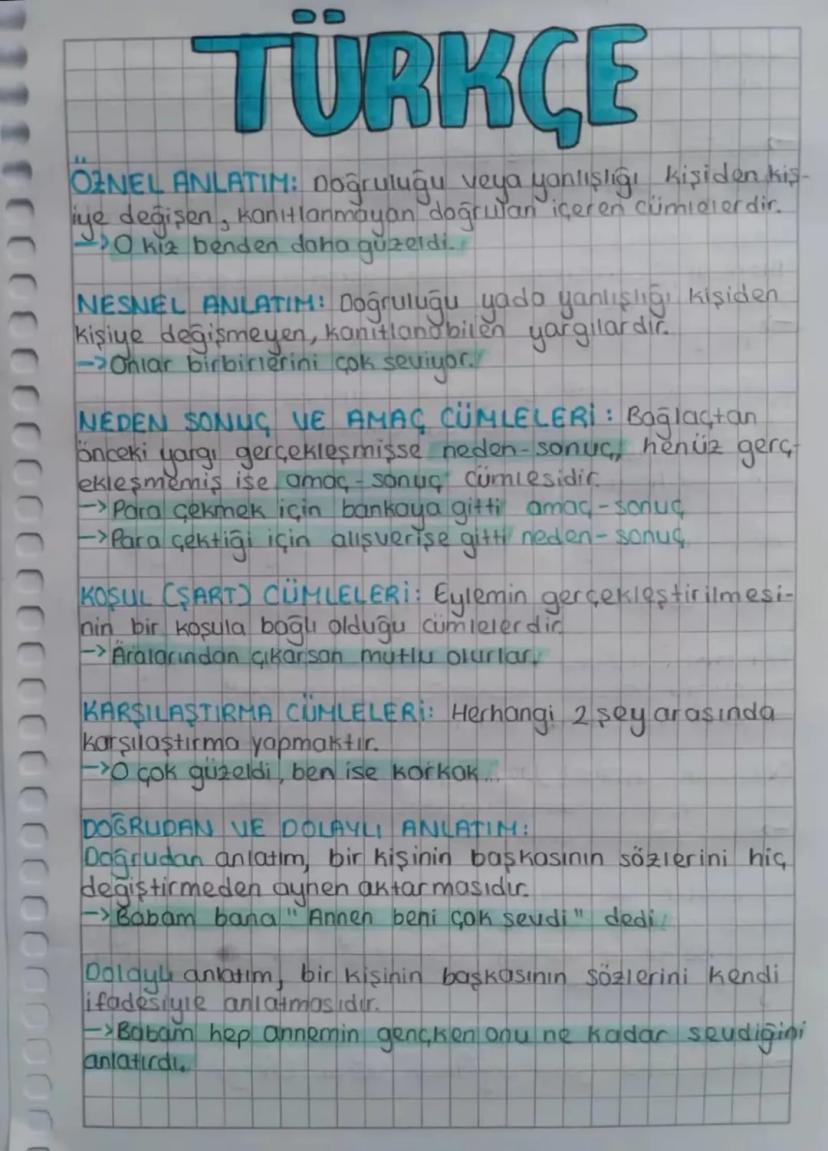 TÜRKÇE
ÖZNEL ANLATIM: Doğruluğu veya yanlışlığı kişiden kiş-
iye değişen, kanıtlanmayan doğruları içeren cümlelerdir.
→ O kız benden daha güzeldi.
NESNEL ANLATIM: Doğruluğu yada yanlışlığı kişiden
kişiye değişmeyen, kanıtlanabilen yargılardır.
→ Onlar birbirlerini çok seviyor.
NEDEN SONUÇ VE AMAÇ CÜMLELERİ: Bağlaçtan
önceki yargı gerçekleşmişse neden-sonuç, henüz gerç-
ekleşmemiş ise amaç-sonuç cümlesidir.
→ Para çekmek için bankaya gitti amaç-sonuç
→ Para çektiği için alışverişe gitti neden-sonuç
KOŞUL (ŞART) CÜMLELERİ: Eylemin gerçekleştirilmesi-
nin bir koşula bağlı olduğu cümlelerdir
→ Aralarından çıkarsan mutlu olurlar.
KARŞILAŞTIRMA CÜMLELERİ: Herhangi 2 şey arasında
karşılaştırma yapmaktır.
→ O çok güzeldi, ben ise korkak...
DOĞRUDAN VE DOLAYLI ANLATIM:
Doğrudan anlatım, bir kişinin başkasının sözlerini hiç
değiştirmeden aynen aktarmasıdır.
→ Babam bana "Annen beni çok sevdi" dedi.
Dolaylı anlatım, bir kişinin başkasının sözlerini kendi
ifadesiyle anlatmasıdır.
→ Babam hep annemin gençken onu ne kadar sevdiğini
anlatırdı.